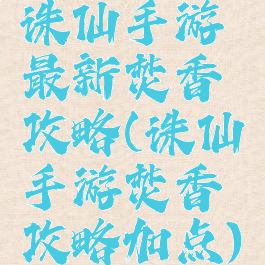 诛仙手游
最新焚香
攻略(诛仙
手游焚香
攻略加点)